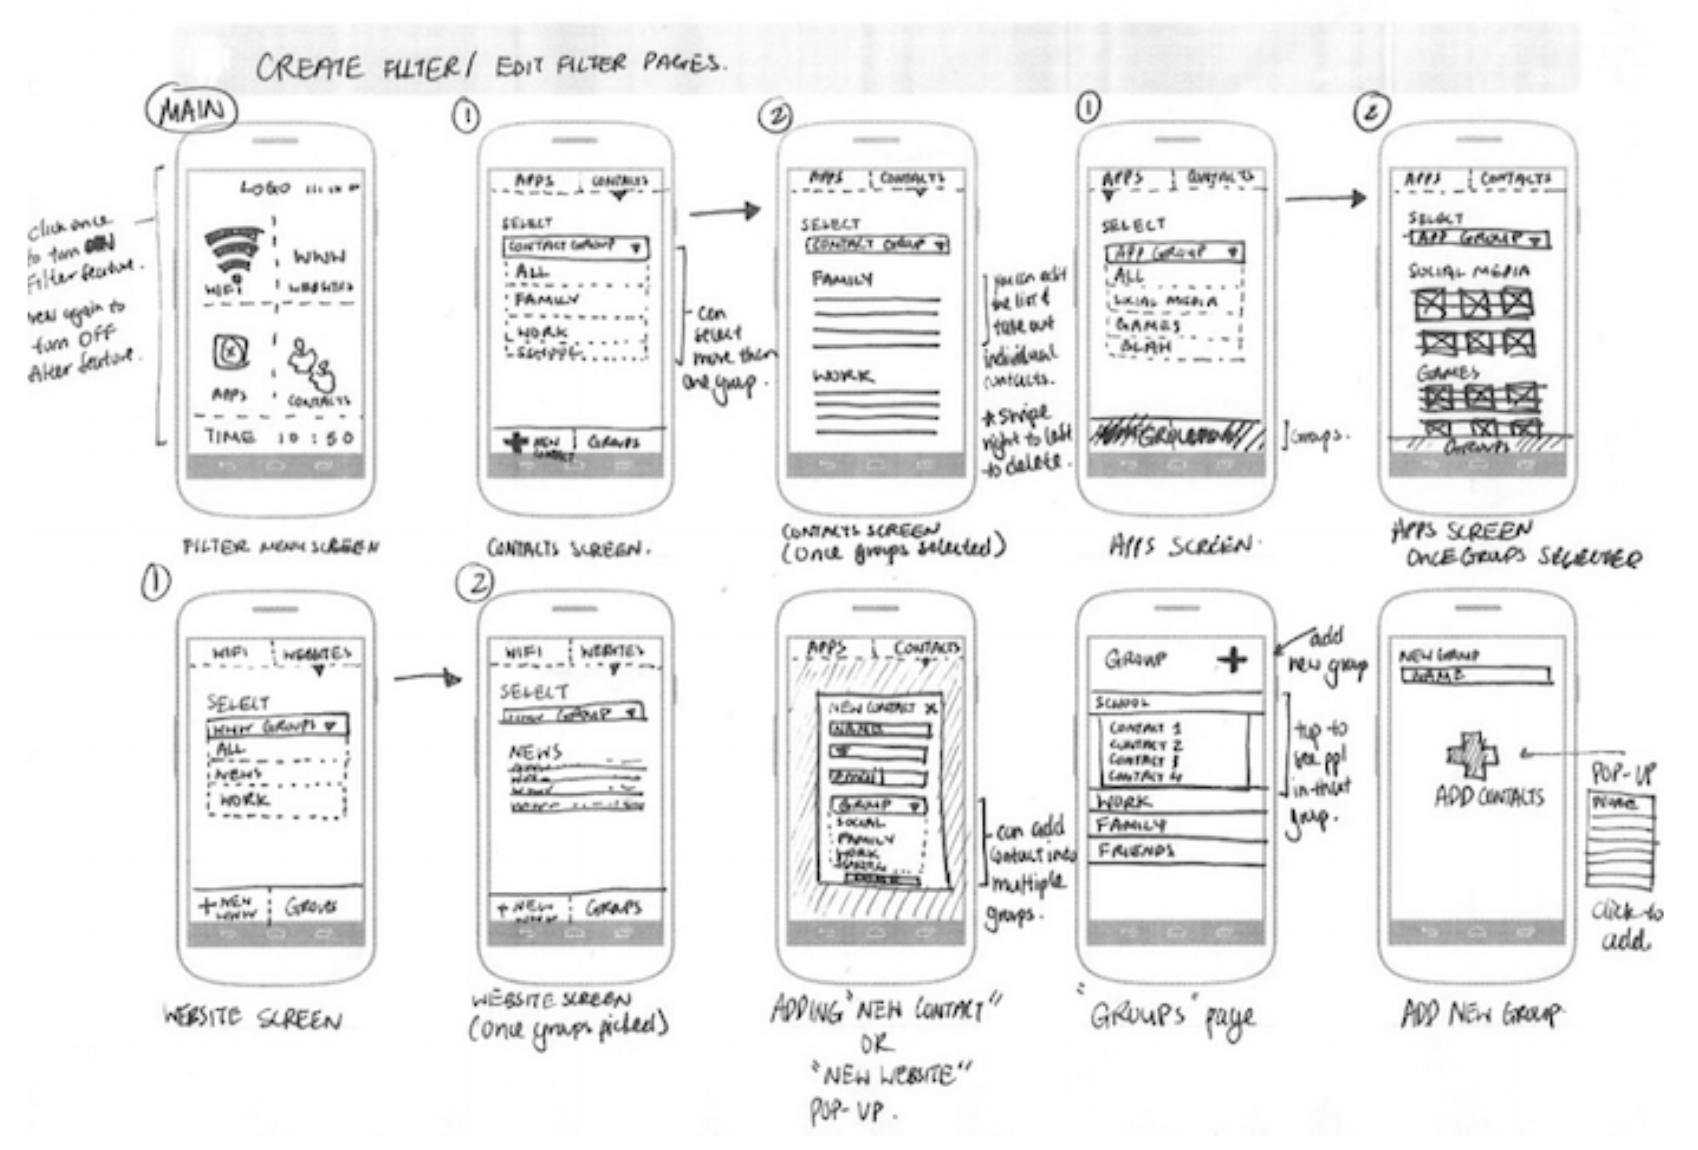 CREATE FILTER/ EDIT FILTER PAGES.
MAIN
click once
to turn ON
Filter feature.
again to
turn OFF
filter feature.
LOGO
WIFI
WWW
WEBSITES
APPS
CONTACTS
TIME 10:50
FILTER MENU SCREEN
1
APPS CONTACTS
SELECT
CONTACT GROUP
ALL
FAMILY
WORK
SCHOOL
+ NEW CONTACT GROUPS
can
select
more then
one group.
CONTACTS SCREEN.
2
APPS CONTACTS
SELECT
CONTACT GROUP
FAMILY
WORK
you can edit
the list &
take out
individual
contacts.
* Swipe
right to left
to delete.
CONTACTS SCREEN
(Once groups selected)
1
APPS CONTACTS
SELECT
APP GROUP
ALL
SOCIAL MEDIA
GAMES
BLAH
Groups.
APPS SCREEN.
2
APPS CONTACTS
SELECT
APP GROUP
SOCIAL MEDIA
GAMES
GROUPS
APPS SCREEN
ONCE GROUPS SELECTED
1
WIFI WEBSITES
SELECT
WWW GROUPS
ALL
NEWS
WORK
+ NEW WWW GROUPS
WEBSITE SCREEN
2
WIFI WEBSITES
SELECT
WWW GROUP
NEWS
+ NEW WWW GROUPS
WEBSITE SCREEN
(Once groups picked)
APPS CONTACTS
NEW CONTACT X
NAME
EMAIL
GROUP
SOCIAL
FAMILY
WORK
can add
contact into
multiple
groups.
ADDING "NEW CONTACT"
OR
"NEW WEBSITE"
POP-UP.
GROUP +
SCHOOL
CONTACT 1
CONTACT 2
CONTACT 3
CONTACT 4
WORK
FAMILY
FRIENDS
add
new group
tap to
see ppl
in that
group.
"GROUPS" page
NEW GROUP
NAME
ADD CONTACTS
POP-UP
PHONE
click to
add
ADD NEW GROUP